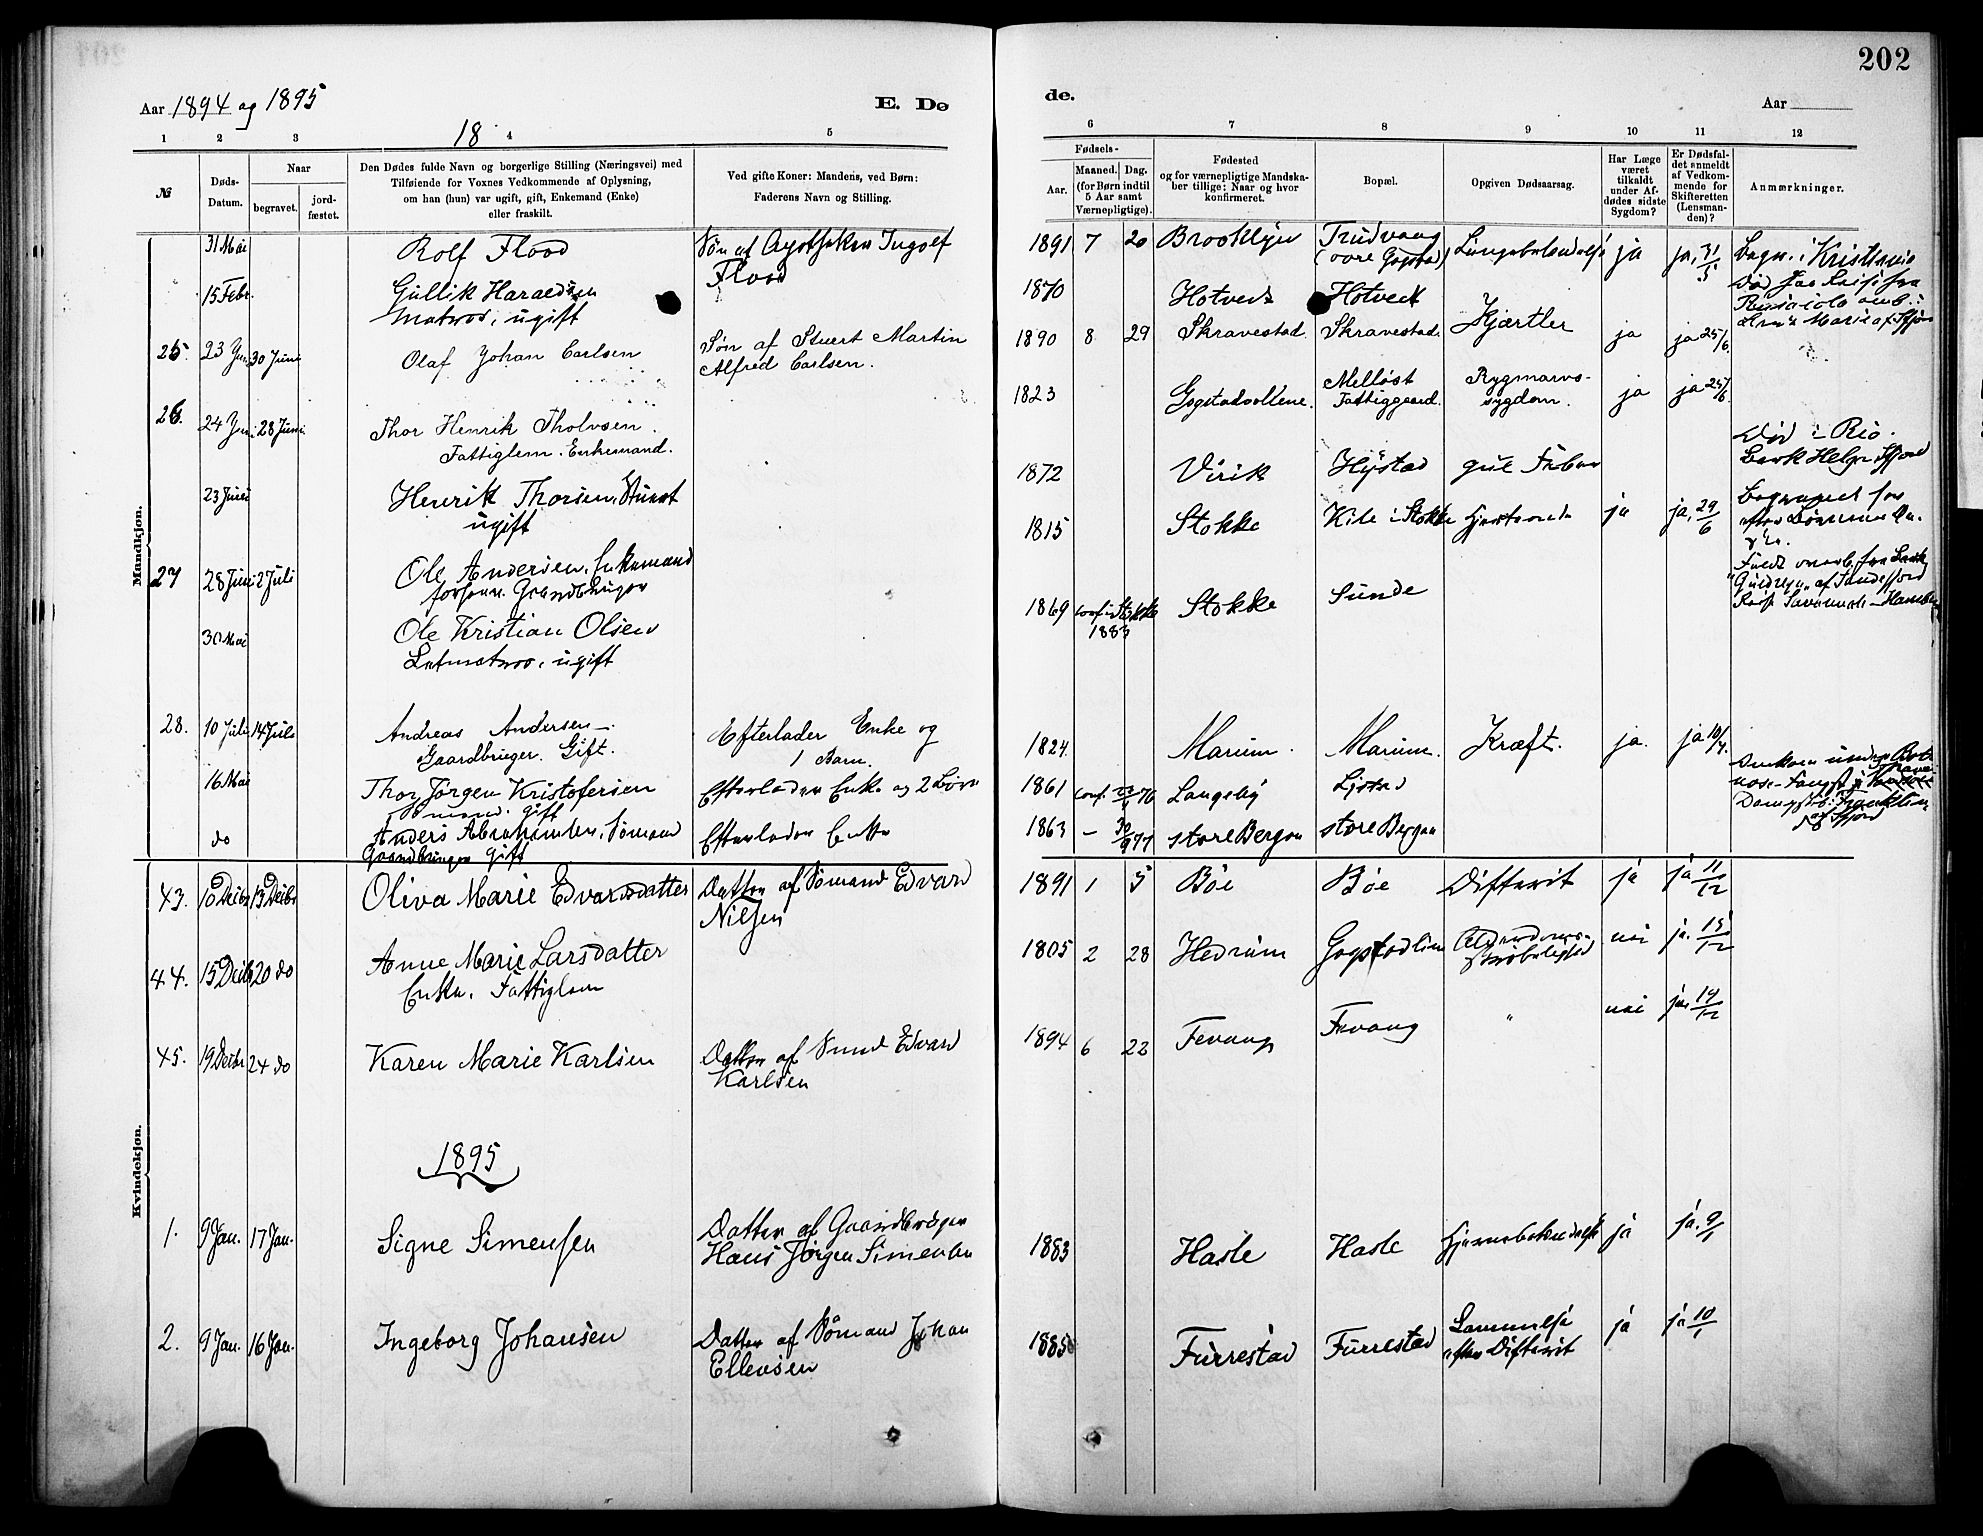 202
Aar 1894 og 1895
E. Dø
de.
Aar
18
1 2 3 4 5
6 7 8 9 10 11 12
№
Døds-
Datum.
Naar
begravet.
jord-
fæstet.
Den Dødes fulde Navn og borgerlige Stilling (Næringsvei) med
Tilføiende for Voxnes Vedkommende af Oplysning,
om han (hun) var ugift, gift, Enkemand (Enke)
eller fraskilt.
Ved gifte Koner: Mandens, ved Børn:
Faderens Navn og Stilling.
Fødsels-
Aar.
Maaned.
Dag.
(for Børn indtil
5 Aar samt
Værnepligtige).
Fødested
og for værnepligtige Mandska-
ber tillige: Naar og hvor
konfirmeret.
Bopæl.
Opgiven Dødsaarsag.
Har Læge
været
tilkaldt
under Af-
dødes sidste
Sygdom?
Er Dødsfal-
det anmeldt
af Vedkom-
mende for
Skifteretten
(Lensman-
den)?
Anmærkninger.
Mandkjøn.
31 Mai Rolf Flood Søn af Apotheker Ingolf
Flood
1891 7 20 Brooklyn Trudvang
(øvre Gogstad) ja ja, 31/5 Begr. i Kristiania
15 Febr. Gullik Haraldsen
Matros, ugift
1870 Hotvedt Hotvedt
25. 23 Juni 30 Juni Olaf Johan Carlsen Søn af Stuert Martin
Alfred Carlsen.
1890 8 29 Skravestad. Skravestad. Hjærtler ja ja 25/6.
26. 24 Juni 28 Juni. Thor Henrik Tholvsen.
Fattiglem. Enkemand.
1823 Gogstadvollene. Melløst
Fattiggaard. Rygmarvs-
sygdom. ja ja 25/6.
23 Juni Henrik Thorsen, Stuert
ugift
1872 Virik Hystad gul Feber Død i Rio.
Bark Helga Sfjord
27 28 Juni 2 Juli Ole Andersen, Enkemand
forhenv. Gaardbruger
1815 Stokke Kile i Stokke ja ja, 29/6
30 Mai Ole Kristian Olsen
Letmatros, ugift
1869 conf. i Stokke
1883 Stokke Sunde
28. 10 Juli 14 Juli Andreas Andersen
Gaardbruger. Gift. Efterlader Enke og
1 Barn.
1824. Marum. Marum. Kræft. ja. ja 10/7.
16 Mai Thor Jörgen Kristofersen
Sømand. gift Efterlader Enke og 2 Børn
1861 Langeby
do Anders Abrahamsen, Sømand
Gaardbruger gift Efterlader Enke
1863 — 30/9 77 store Bergan store Bergan
Kvindekjøn.
43. 10 Decbr 13 Decbr Oliva Marie Edvardsdatter Datter af Sømand Edvard
Nilsen
1891 1 5 Bøe Bøe Difterit ja ja 11/12
44. 15 Decb 20 do Anne Marie Larsdatter
Enke. Fattiglem
1805 2 28 Hedrum Gogstadlien Alderdoms-
skrøbelighed nei ja. 15/12
45. 19 Decbr 24 do Karen Marie Karlsen Datter af Smed Edvard
Karlsen
1894 6 22 Fevang Fevang " nei ja. 19/12
1895
1. 9 Jan. 17 Jan. Signe Simensen Datter af Gaardbruger
Hans Jörgen Simensen
1883 Hasle Hasle Hjernebetændelse ja ja. 9/1
2. 9 Jan. 16 Jan. Ingeborg Johansen Datter af Sømand Johan
Ellevsen
1885 Furrestad Furrestad Lammelse
efter Difterit ja ja 10/1